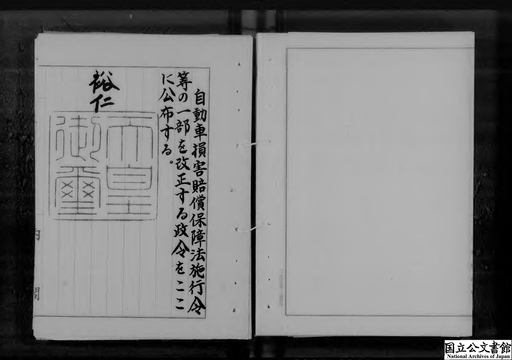 自動車損害賠償保障法施行令
等の一部を改正する政令をここ
に公布する。
裕仁
天皇
御璽
内
閣
国立公文書館
National Archives of Japan